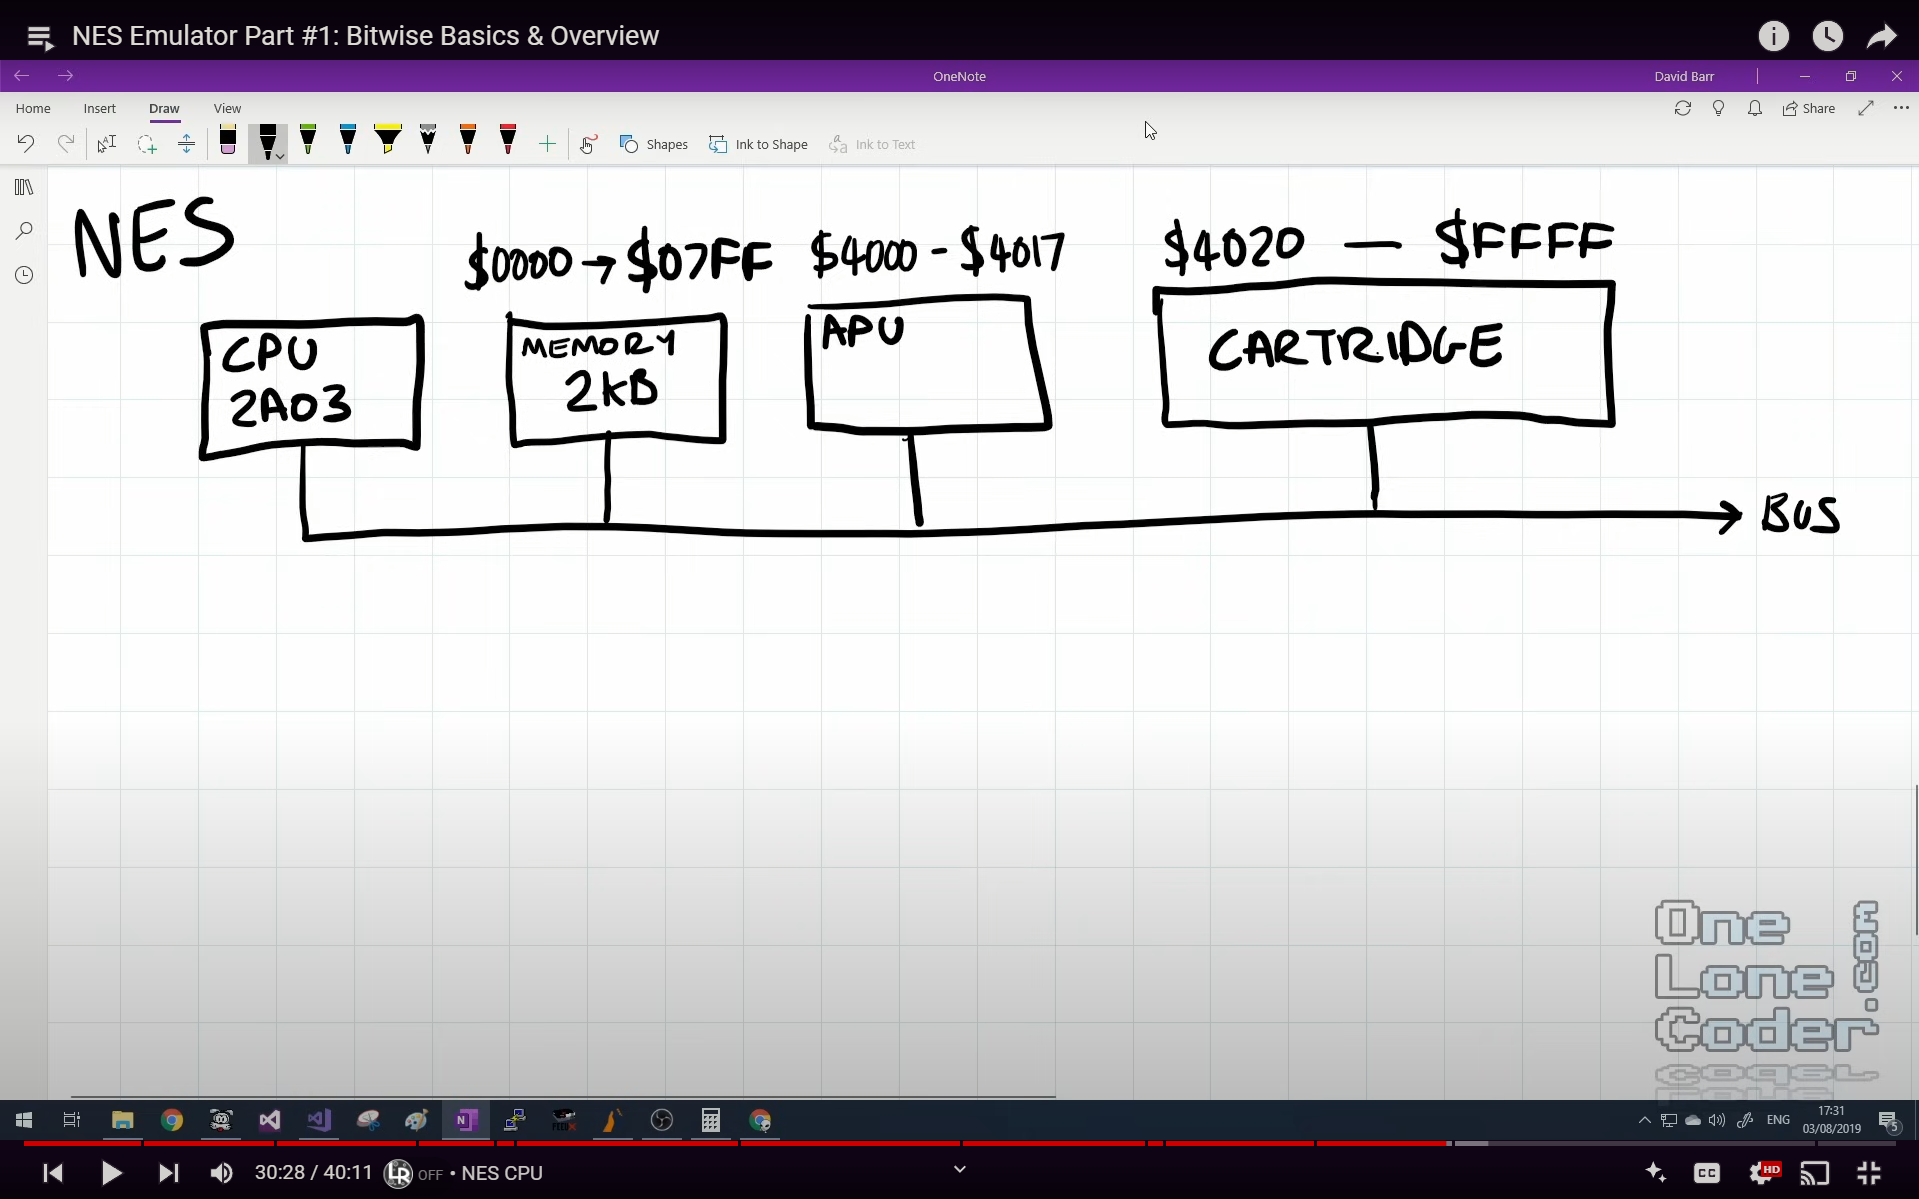 NES Emulator Part #1: Bitwise Basics & Overview
OneNote
David Barr
Home Insert Draw View
Share
Shapes
Ink to Shape
Ink to Text
NES
$0000 → $07FF
$4000 - $4017
$4020 — $FFFF
CPU
2A03
MEMORY
2KB
APU
CARTRIDGE
BUS
One
Lone
Coder
.com
ENG
17:31
03/08/2019
5
30:28 / 40:11
OFF • NES CPU
CC
HD